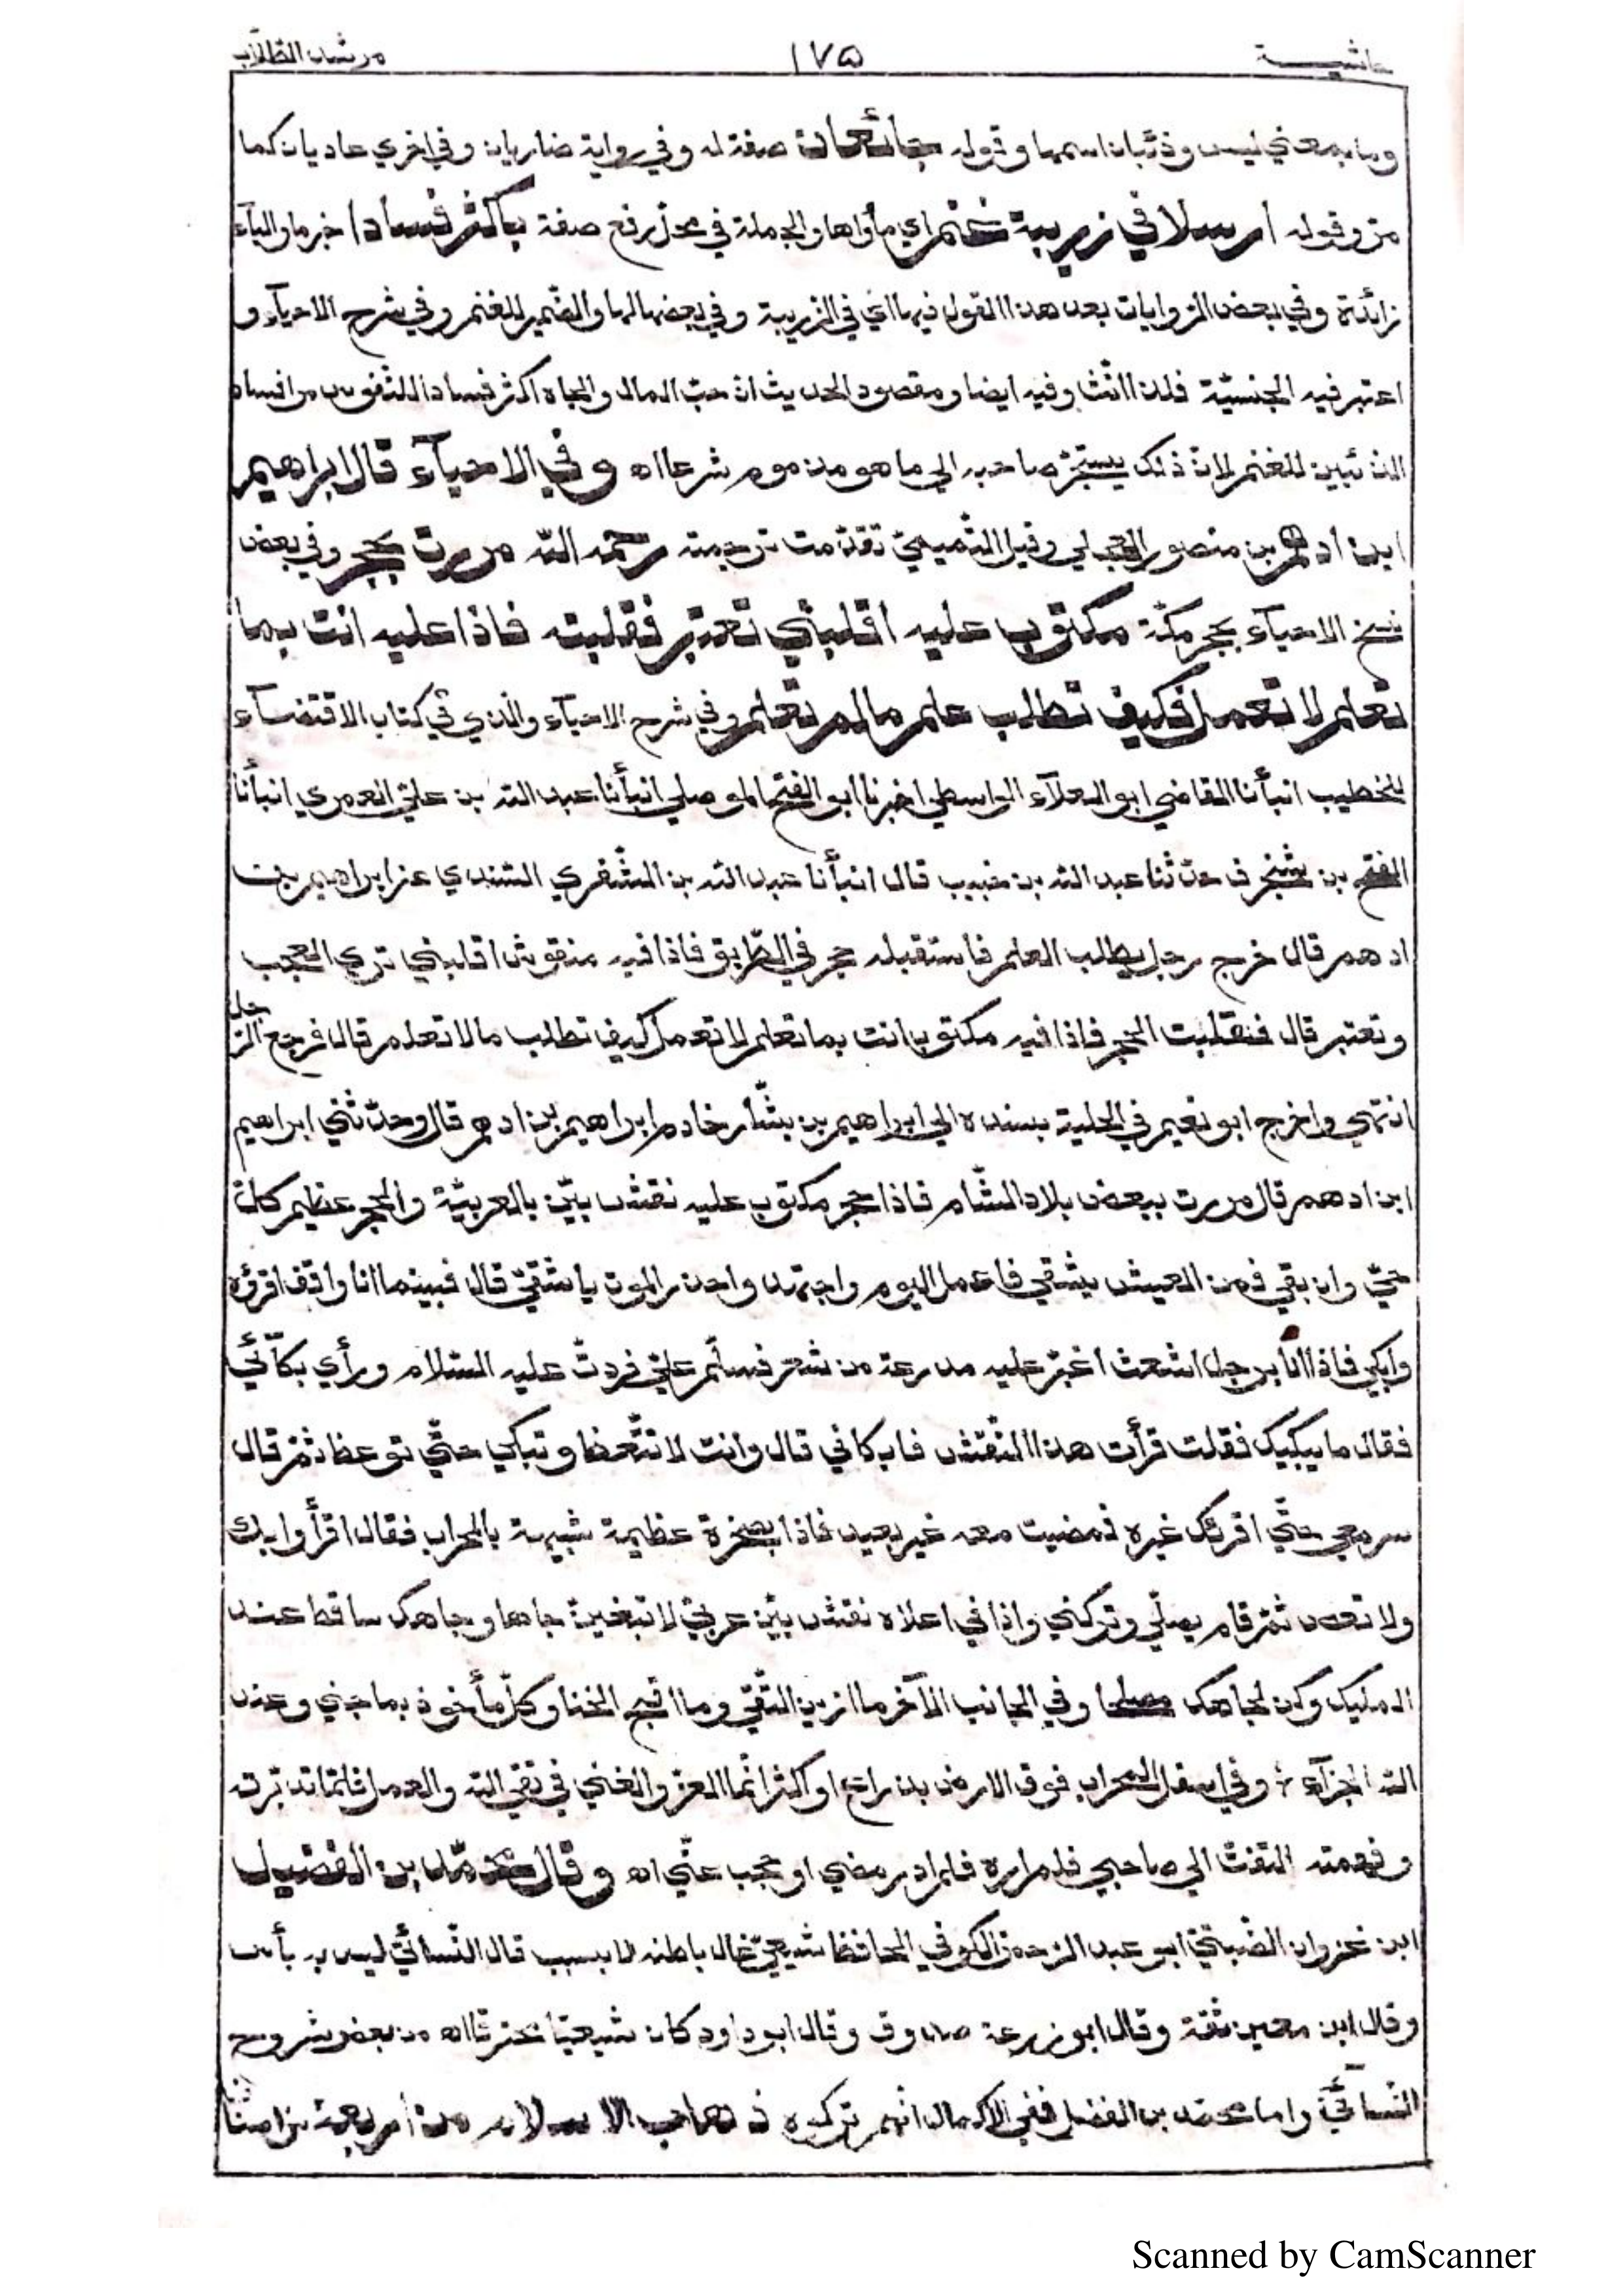 حاشيـــة ١٧٥ مرشد الطلّاب
وما بمعني ليس وذئبان اسمها وقوله جائعان صفة له وفي رواية ضاريان وفي اخري عاديان كما
مرّ وقوله ارسلا في زريبة غنم اي مأواها والجملة في محلّ رفع صفة باكثر فسادا خبر ما والباء
زائدة وفي بعض الروايات بعد هذا القول فيها اي في الزريبة وفي بعضها لها والضّمير للغنم وفي شرح الاحياء و
اعتبر فيه الجنسيّة فلذا انّث وفيه ايضا ومقصود الحديث انّ حبّ المال والجاه اكثر فسادا للنّفوس من افساد
الذئبين للغنم لانّ ذلك يستجرّ صاحبه الي ما هو مذموم شرعا اه وفي الاحيآء قال ابراهيم
ابن ادهم بن منصور العجلي وقيل التّميميّ تقدّمت ترجمته رحمه اللّه مررت بحجر وفي بعض
نسخ الاحيآء بحجر مكّة مكتوب عليه اقلبني تعتبر فقلبته فاذا عليه انت بما
تعلم لا تعمل فكيف تطلب علم ما لم تعلم وفي شرح الاحيآء والذي في كتاب الاقتضآء
للخطيب انبأنا القاضي ابو العلآء الواسطي اخبرنا ابو الفتح الموصلي انبأنا عبد اللّه بن عليّ العمري انبأنا
الفتح بن شخرف حدّثنا عبد اللّه بن خبيب قال انبأنا عبد اللّه بن السّندي عن ابراهيم بن
ادهم قال خرج رجل يطلب العلم فاستقبله حجر في الطّريق فاذا فيه منقوش اقلبني تري العجب
وتعتبر قال فقلبت الحجر فاذا فيه مكتوب انت بما تعلم لا تعمل كيف تطلب ما لا تعلم قال فرجع الرّجل
انتهي واخرج ابو نعيم في الحلية بسنده الي ابراهيم بن بشّار خادم ابراهيم بن ادهم قال وحدّثني ابراهيم
ابن ادهم قال مررت ببعض بلاد الشّام فاذا حجر مكتوب عليه نقش بيّن بالعربيّة والحجر عظيم كلّ
حيّ وان بقي فمن العيش يشقي فاعمل اليوم واجتهد واحذر الموت يا شقيّ قال فبينما انا واقف اقرؤه
وابكي فاذا انا برجل اشعث اغبر عليه مدرعة من شعر فسلّم عليّ فرددتّ عليه السّلام ورأي بكآئيّ
فقال ما يبكيك فقلت قرأت هذا النّقش فابكاني قال وانت لا تتّعظ وتبكي حتّي توعظ ثمّ قال
سر معي حتّي اقرئك غيره فمضيت معه غير بعيد فاذا بصخرة عظيمة شبيهة بالمحراب فقال اقرأ وابك
ولا تعص ثمّ قام يصلّي وتركني واذا في اعلاه نقش بيّن عربيّ لا تبغين جاها وجاهك ساقط عند
المليك وكن لجاهك مصلحا وفي الجانب الآخر ما ازين التّقي وما اقبح الخنا وكلّ مأخوذ بما جني وعند
اللّه الجزآء وفي اسفل المحراب فوق الارض بذراع او اكثر انّما العزّ والغني في تقي اللّه والعمل فلمّا تدبّرته
وفهمته التفتّ الي صاحبي فلم اره فلم ادر مضي او حجب عنّي اه وقال محمّد بن الفضيل
ابن غزوان الضّبيّ ابو عبد الرّحمن الكوفي الحافظ شيعيّ غال باطنه لا يسبّ قال النّسائيّ ليس به بأس
وقال ابن معين ثقة وقال ابو زرعة صدوق وقال ابو داود كان شيعيّا محترقا اه من بعض شروح
النّسائيّ واما محمّد بن الفضل ففي الاكمال انهم تركوه ذهاب الاسلام من أربعة